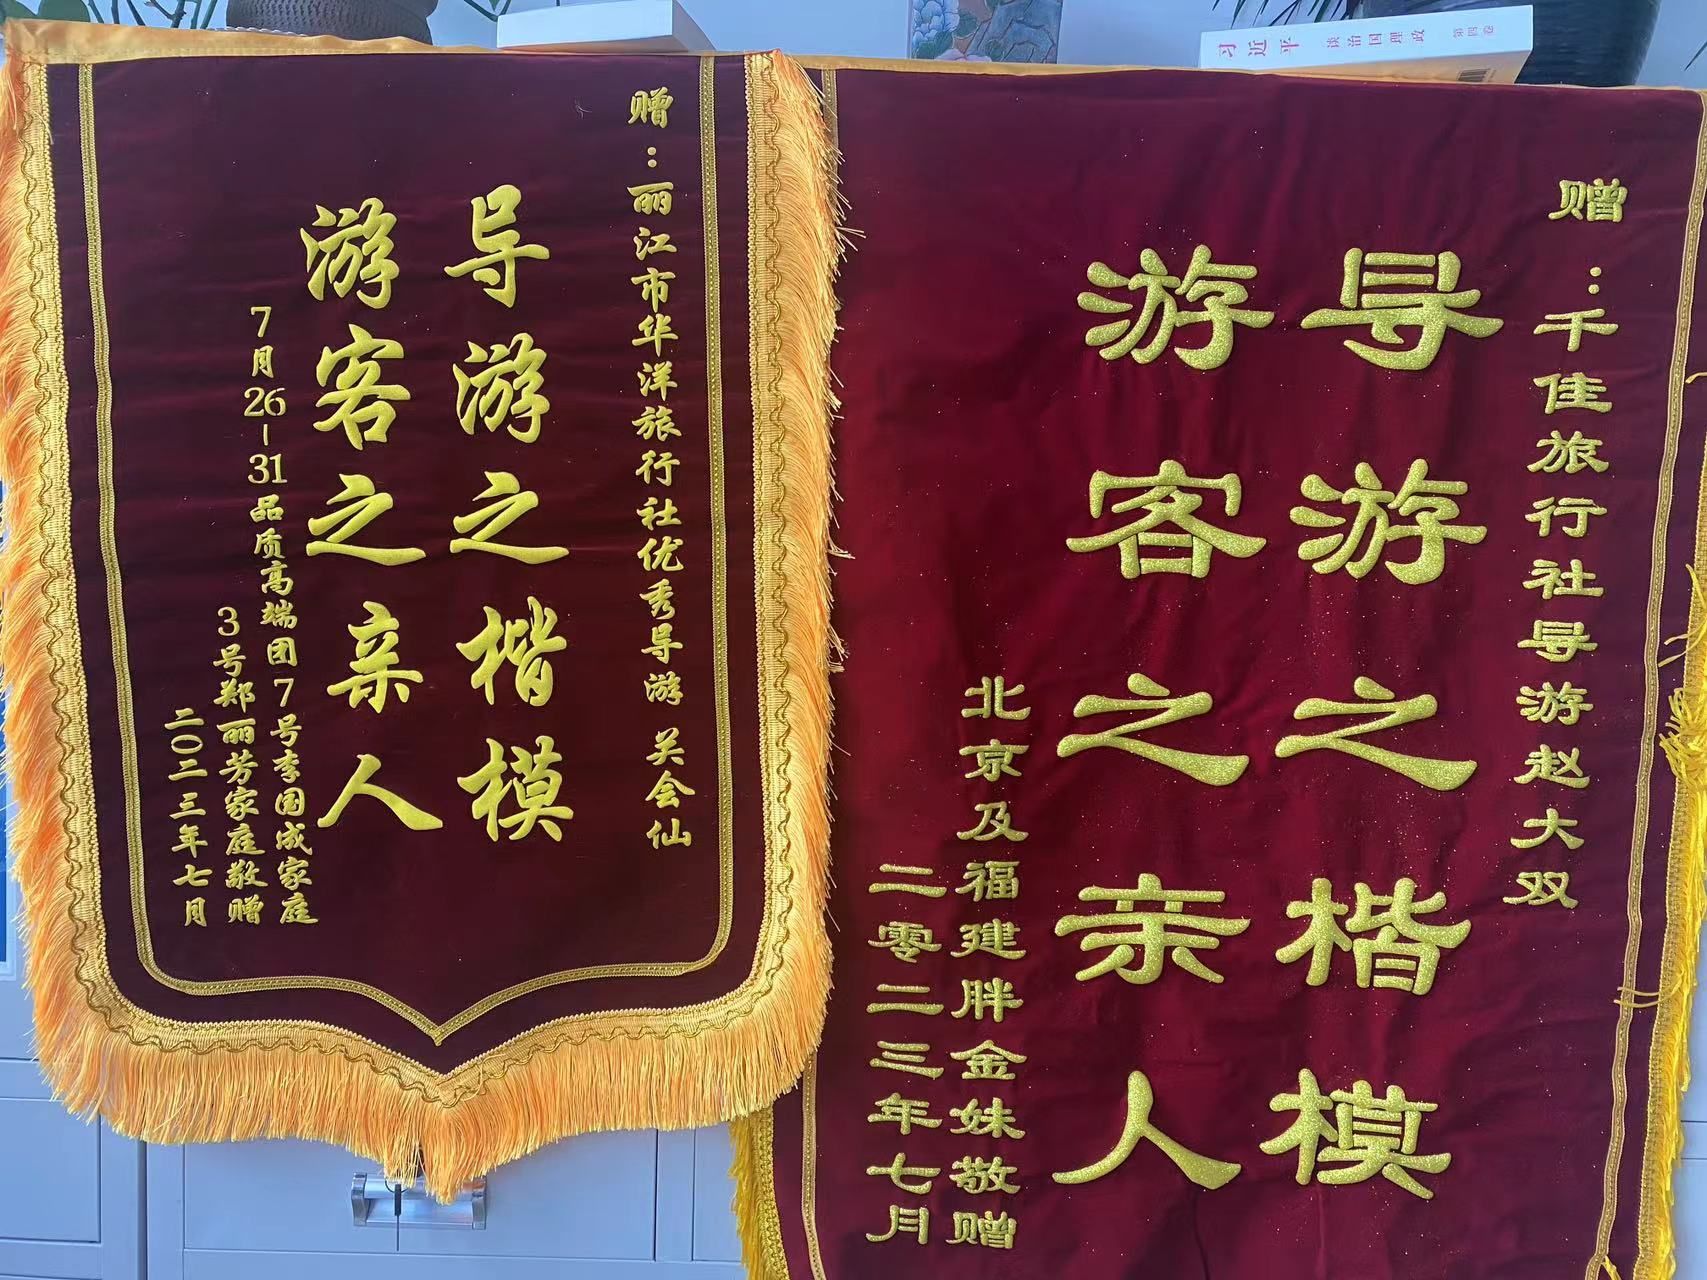 赠：丽江市华洋旅行社优秀导游 关会仙
导游之楷模
游客之亲人
7月26-31品质高端团7号李国成家庭
3号郑丽芳家庭敬赠
二〇二三年七月
赠：千佳旅行社导游赵大双
导游之楷模
游客之亲人
北京及福建胖金妹敬赠
二零二三年七月
习近平 谈治国理政 第四卷